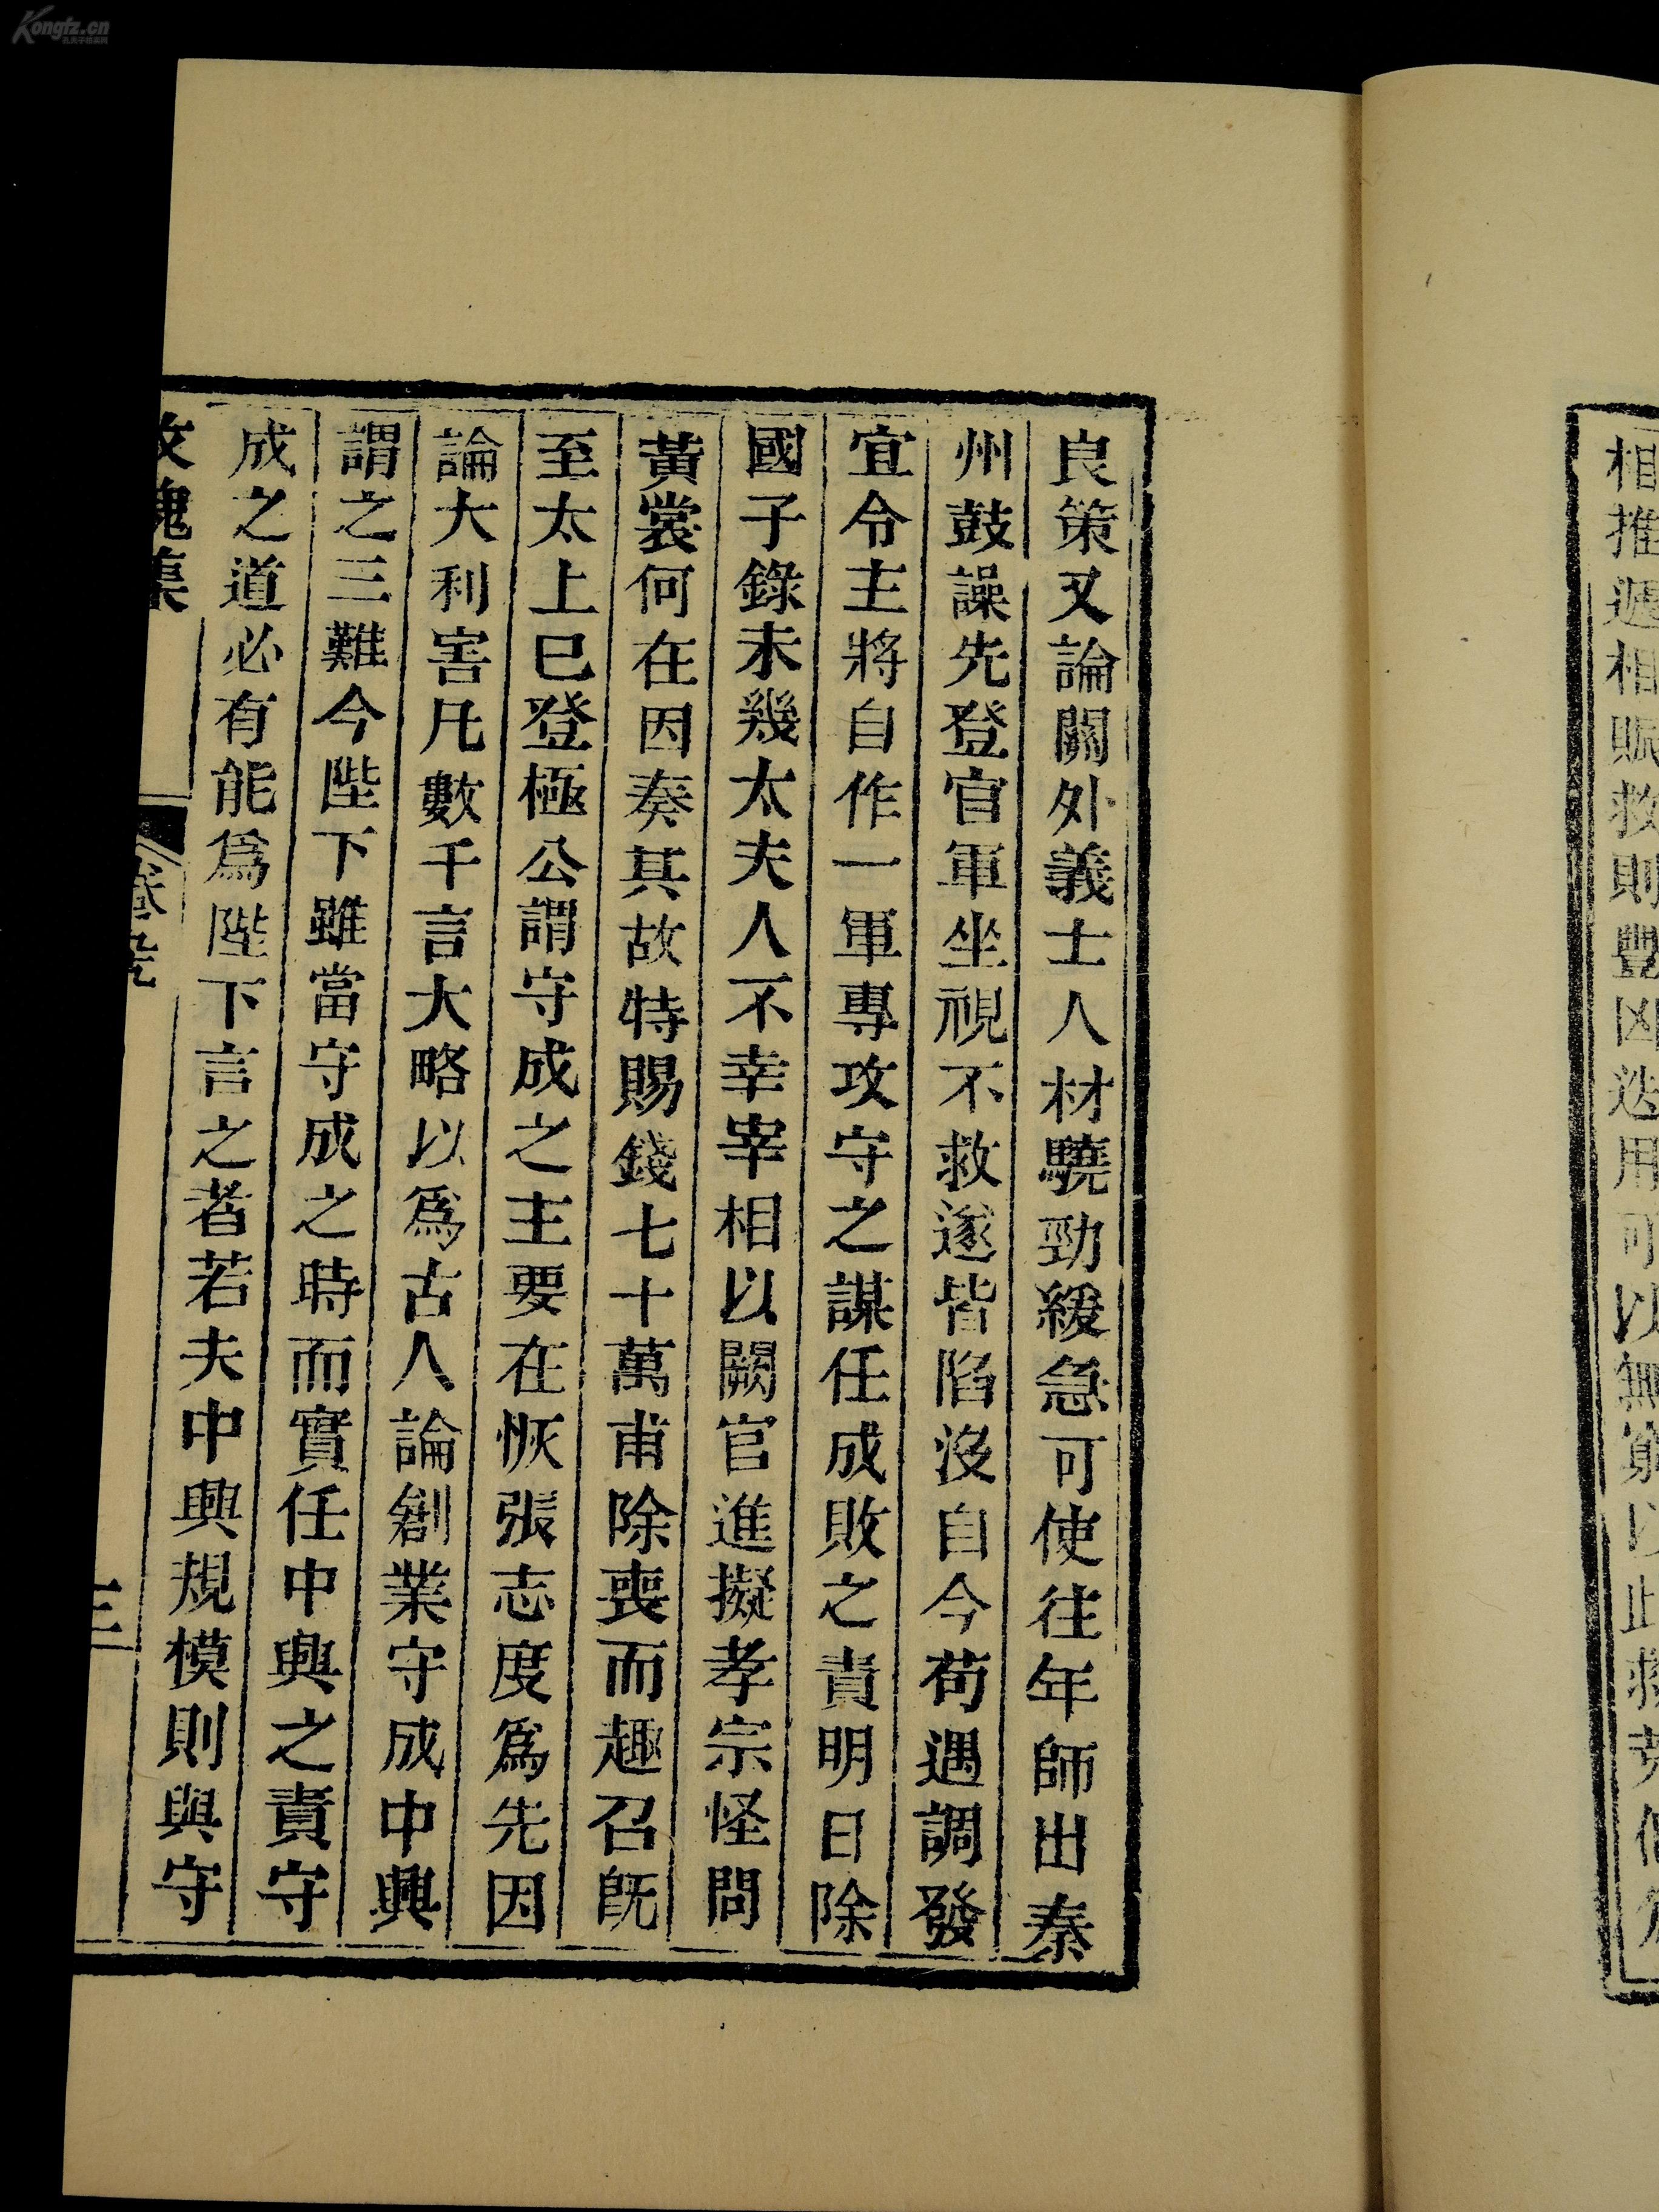 Kongfz.cn
相推遞相賑救則豐凶迭用可以無窮以此救荒
良策又論關外義士人材驍勁緩急可使往年師出秦
州鼓譟先登官軍坐視不救遂皆陷沒自今苟遇調發
宜令主將自作一軍專攻守之謀任成敗之責明日除
國子錄未幾太夫人不幸宰相以闕官進擬孝宗怪問
黃裳何在因奏其故特賜錢七十萬甫除喪而趣召旣
至太上已登極公謂守成之主要在恢張志度爲先因
論大利害凡數千言大略以爲古人論創業守成中興
謂之三難今陛下雖當守成之時而實任中興之責守
成之道必有能爲陛下言之者若夫中興規模則與守
攻媿集
三